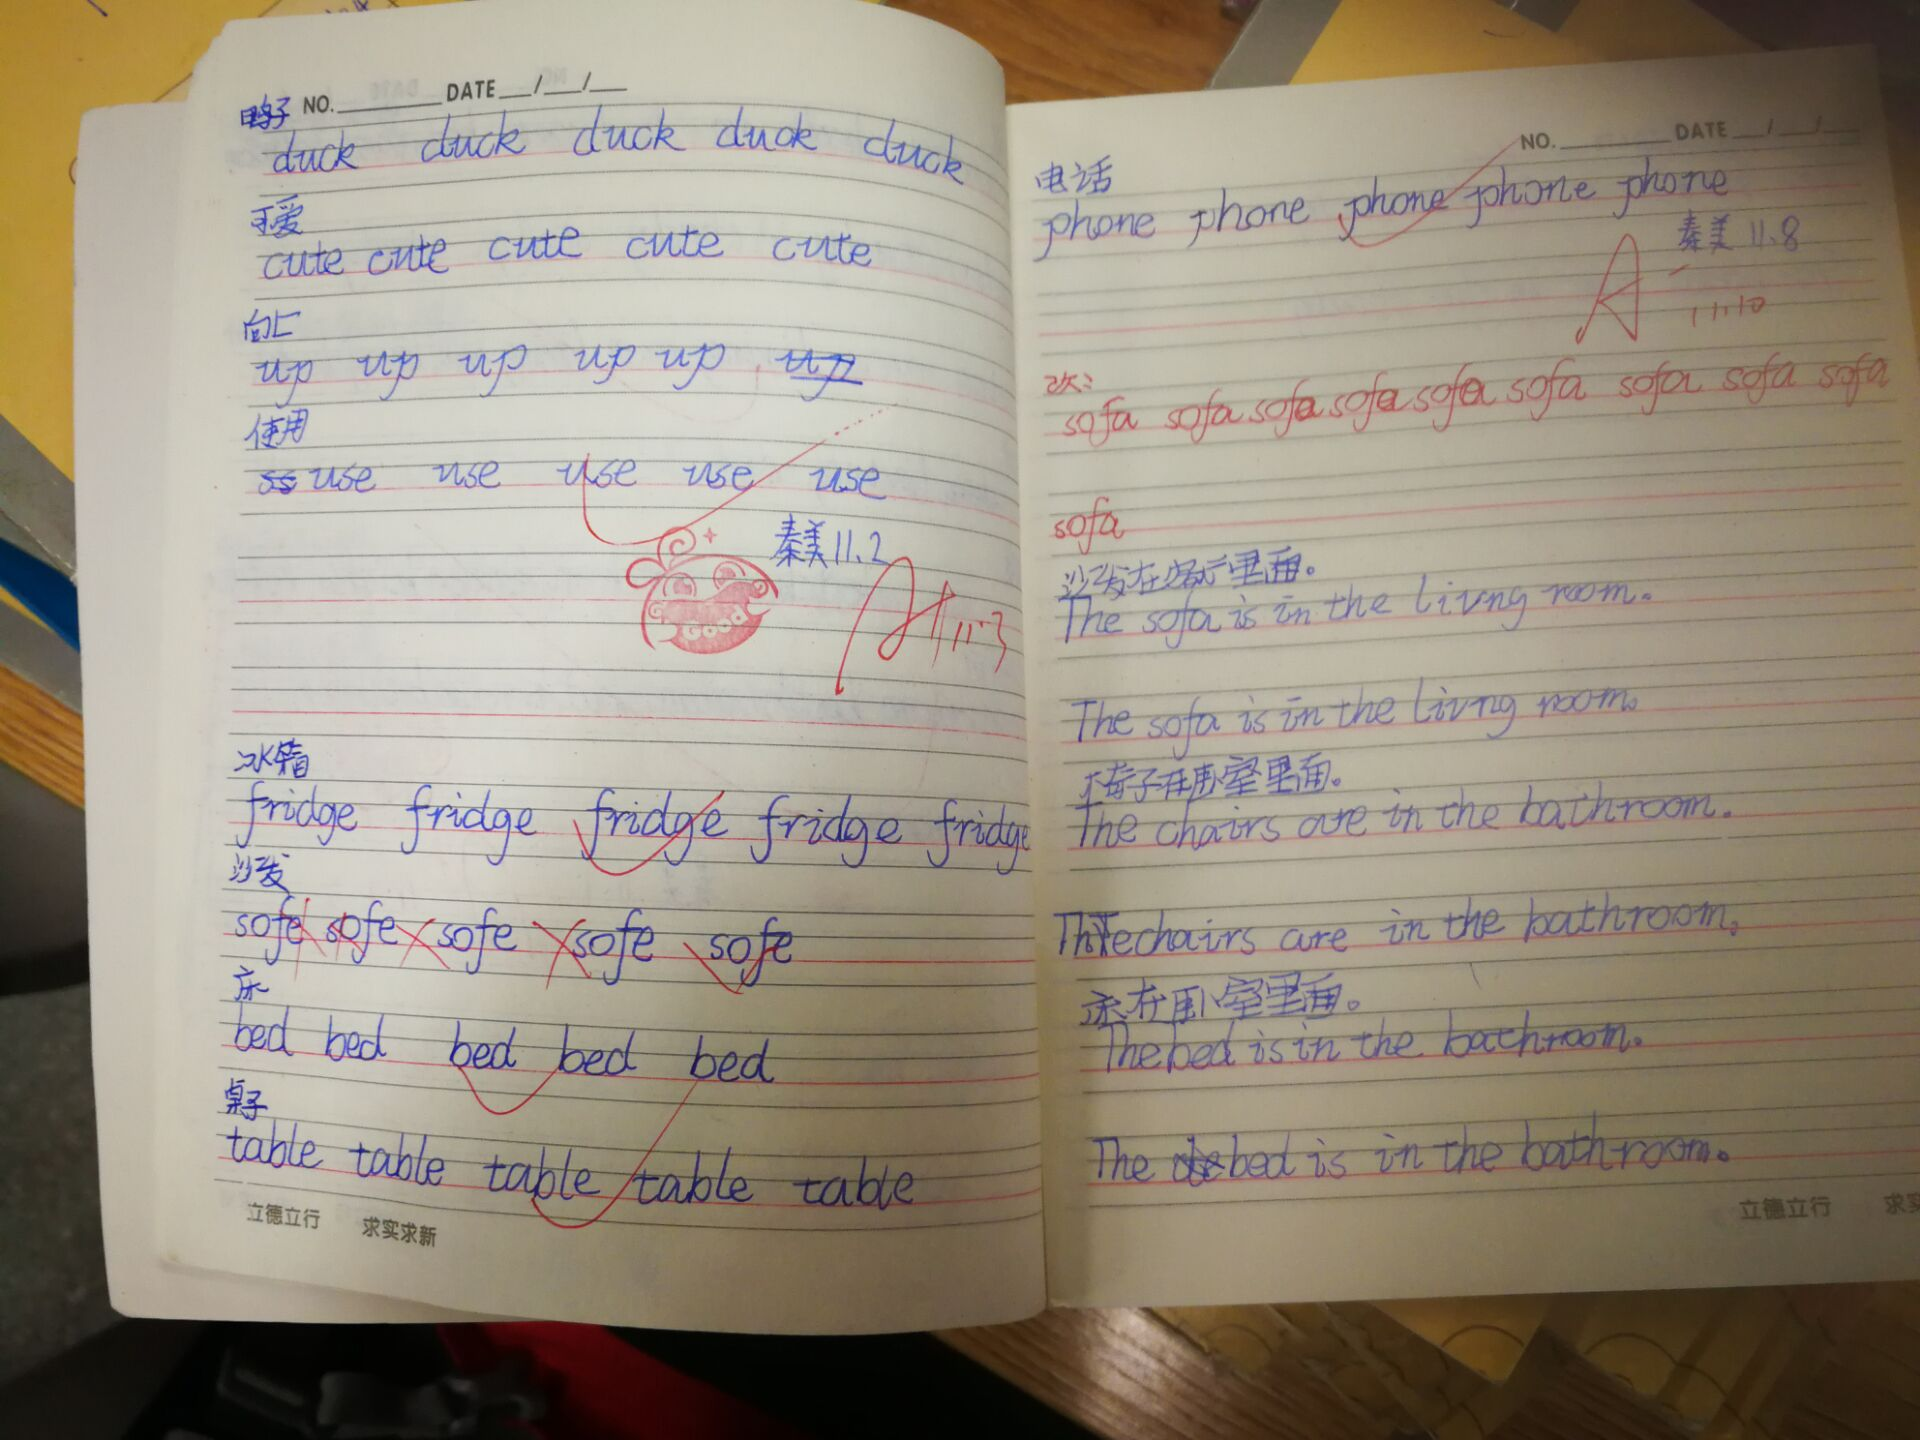 鸭子 NO. DATE / /
duck duck duck duck duck
可爱
cute cute cute cute cute
向上
up up up up up up
使用
ss use use use use use
秦美 11.2
good
A 11.3
冰箱
fridge fridge fridge fridge fridge
沙发
sofe sofe sofe sofe sofe
床
bed bed bed bed bed
桌子
table table table table table
立德立行 求实求新
NO. DATE / /
电话
phone phone phone phone phone
秦美 11.8
A-
11.10
改:
sofa sofa sofa sofa sofa sofa sofa sofa sofa
sofa
沙发在客厅里面。
The sofa is in the livng room.
The sofa is in the livng room.
椅子在卧室里面。
The chairs are in the bathroom.
The chairs are in the bathroom.
床在卧室里面。
The bed is in the bathroom.
The bed is in the bathroom.
立德立行 求实